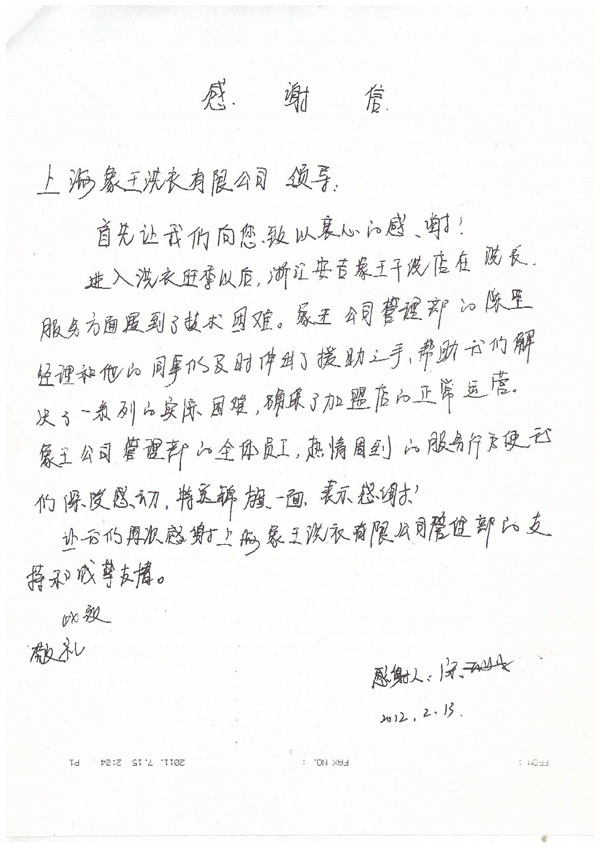 感谢信
上海象王洗衣有限公司 领导:
首先让我们向您致以衷心的感谢!
进入洗衣旺季以后,浙江安吉象王干洗店在洗衣
服务方面遇到了技术困难。象王公司管理部的陈星
经理和他的同事们及时伸出了援助之手,帮助我们解
决了一系列的实际困难,确保了加盟店的正常运营。
象王公司管理部的全体员工,热情周到的服务行为使我
们深受感动,特送锦旗一面,表示感谢!
让我们再次感谢上海象王洗衣有限公司管理部的支
持和 友情。
此致
敬礼
感谢人:
2012.2.13.
FROM : FAX NO. : 2011.7.15 2:04 P1